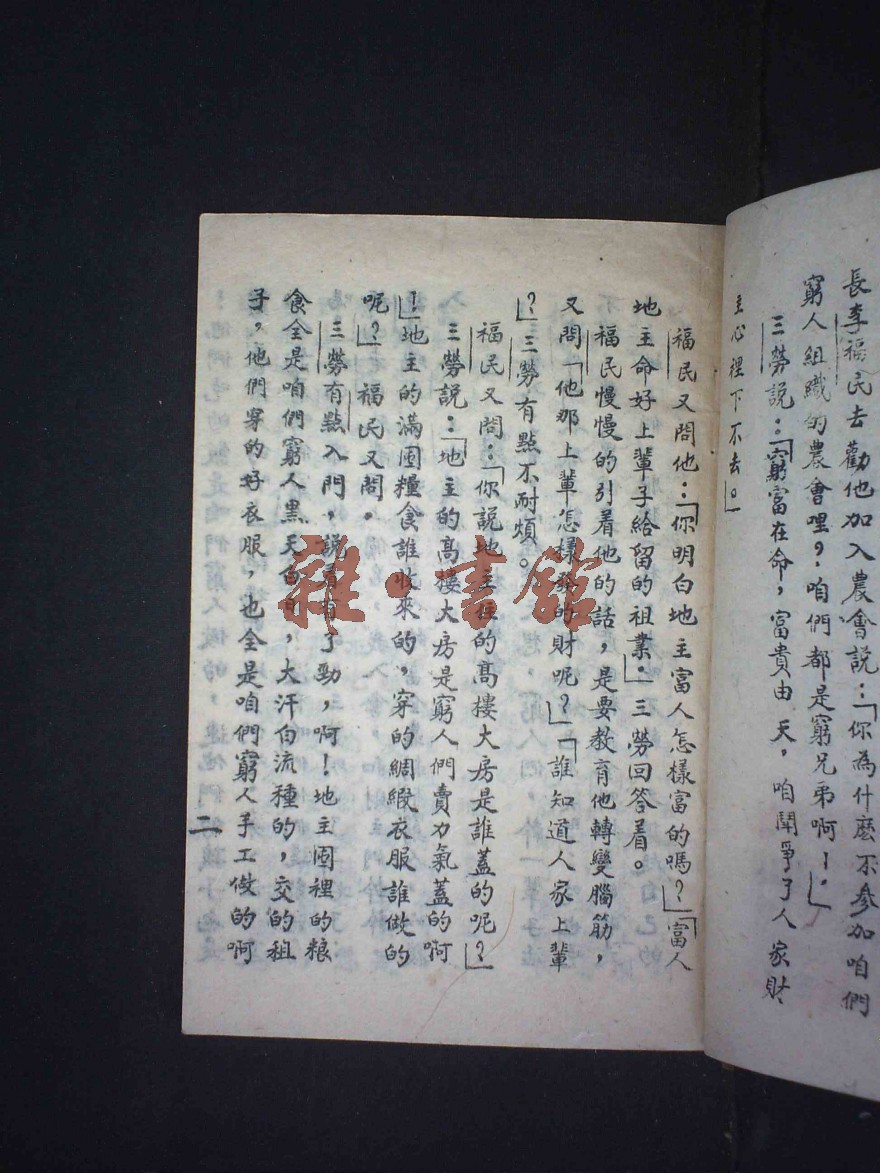 長李福民去勸他加入農會說：「你為什麼不參加咱們
窮人組織的農會哩？咱們都是窮兄弟啊！」
三勞說：「窮富在命，富貴由天，咱鬪爭了人家財
主心裡下不去。」
福民又問他：「你明白地主富人怎樣富的嗎？」「富人
地主命好上輩子給留的祖業」三勞回答着。
福民慢慢的引着他的話，是要教育他轉變腦筋，
又問「他那上輩怎樣發的財呢？」「誰知道人家上輩
？」三勞有點不耐煩。
福民又問：「你說地主住的高樓大房是誰蓋的呢？」
三勞說：「地主的高樓大房是窮人們賣力氣蓋的啊
！」地主的滿囤糧食誰收來的，穿的綢緞衣服誰做的
呢？」福民又問。
三勞有點入門，說着有了勁，啊！地主囤裡的粮
食全是咱們窮人黑天白日，大汗白流種的，交的租
子，他們穿的好衣服，也全是咱們窮人手工做的啊
二
雜·書館